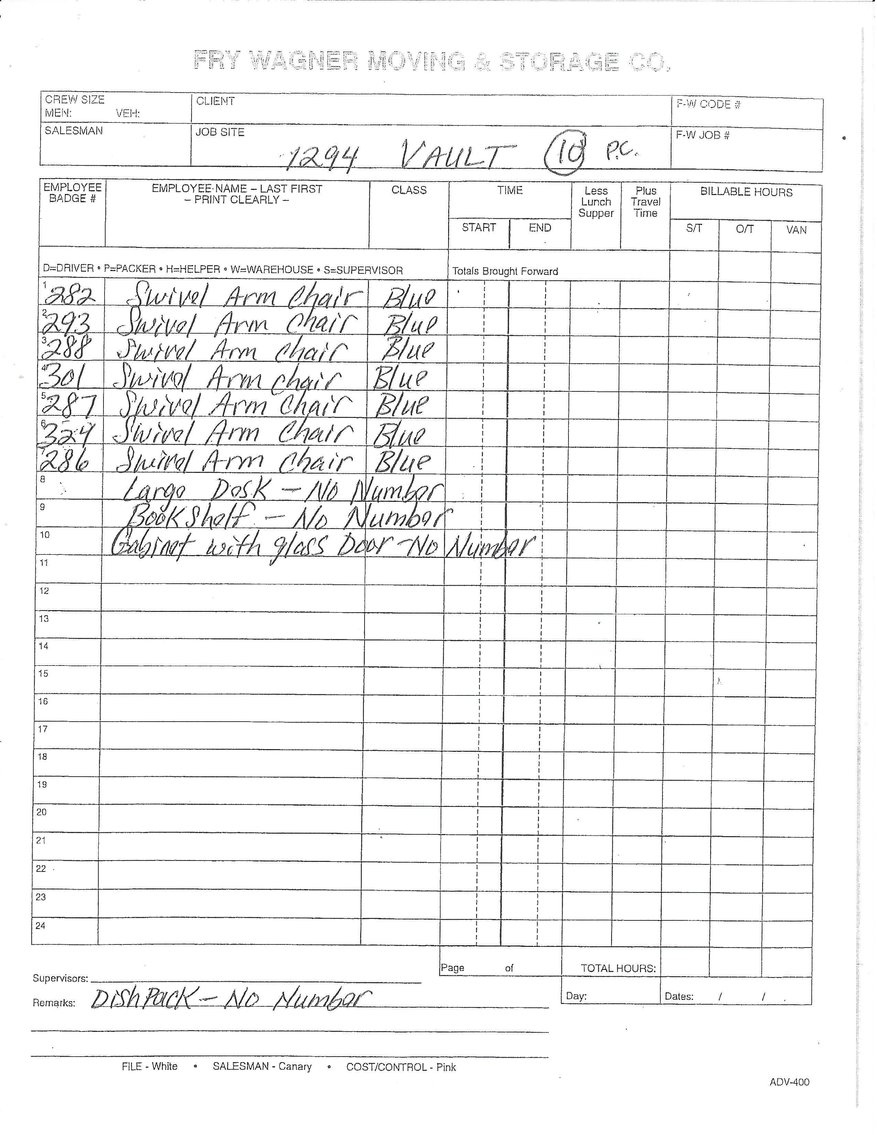 FRY WAGNER MOVING & STORAGE CO.
CREW SIZE
MEN: VEH:
CLIENT
F-W CODE #
SALESMAN
JOB SITE
1294 VAULT 10 P.C.
F-W JOB #
EMPLOYEE BADGE #
EMPLOYEE NAME – LAST FIRST
– PRINT CLEARLY –
CLASS
TIME
START END
Less Lunch Supper
Plus Travel Time
BILLABLE HOURS
S/T O/T VAN
D=DRIVER • P=PACKER • H=HELPER • W=WAREHOUSE • S=SUPERVISOR
Totals Brought Forward
1 282 Swivel Arm Chair Blue
2 293 Swivel Arm Chair Blue
3 288 Swivel Arm Chair Blue
4 301 Swivel Arm chair Blue
5 287 Swivel Arm Chair Blue
6 324 Swivel Arm Chair Blue
286 Swivel Arm Chair Blue
8 Largo Desk – No Number
9 Book Shelf – No Number
10 Cabinet with glass Door – No Number
11
12
13
14
15
16
17
18
19
20
21
22
23
24
Page of
TOTAL HOURS:
Supervisors:
Remarks: Dish Pack – No Number
Day:
Dates: / / .
FILE - White • SALESMAN - Canary • COST/CONTROL - Pink
ADV-400